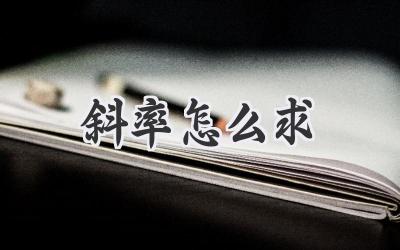 斜率怎么求